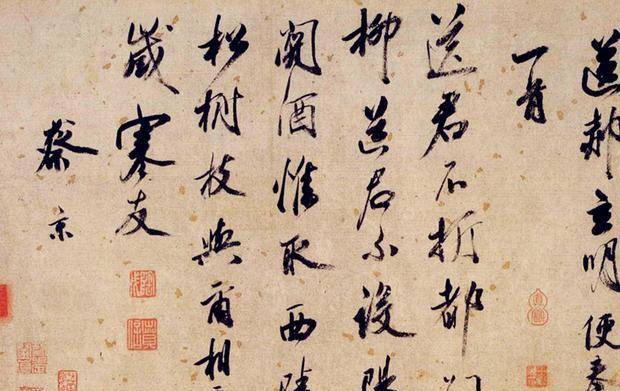 送郝玄明使秦
一首
送君不折都門
柳送君不設陽
關酒惟取西陵
松樹枝與爾相
歲寒友
蔡京